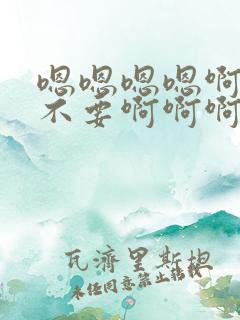 嗯嗯嗯嗯啊
不要啊啊啊
瓦濟里斯坦
未经同意禁止转载